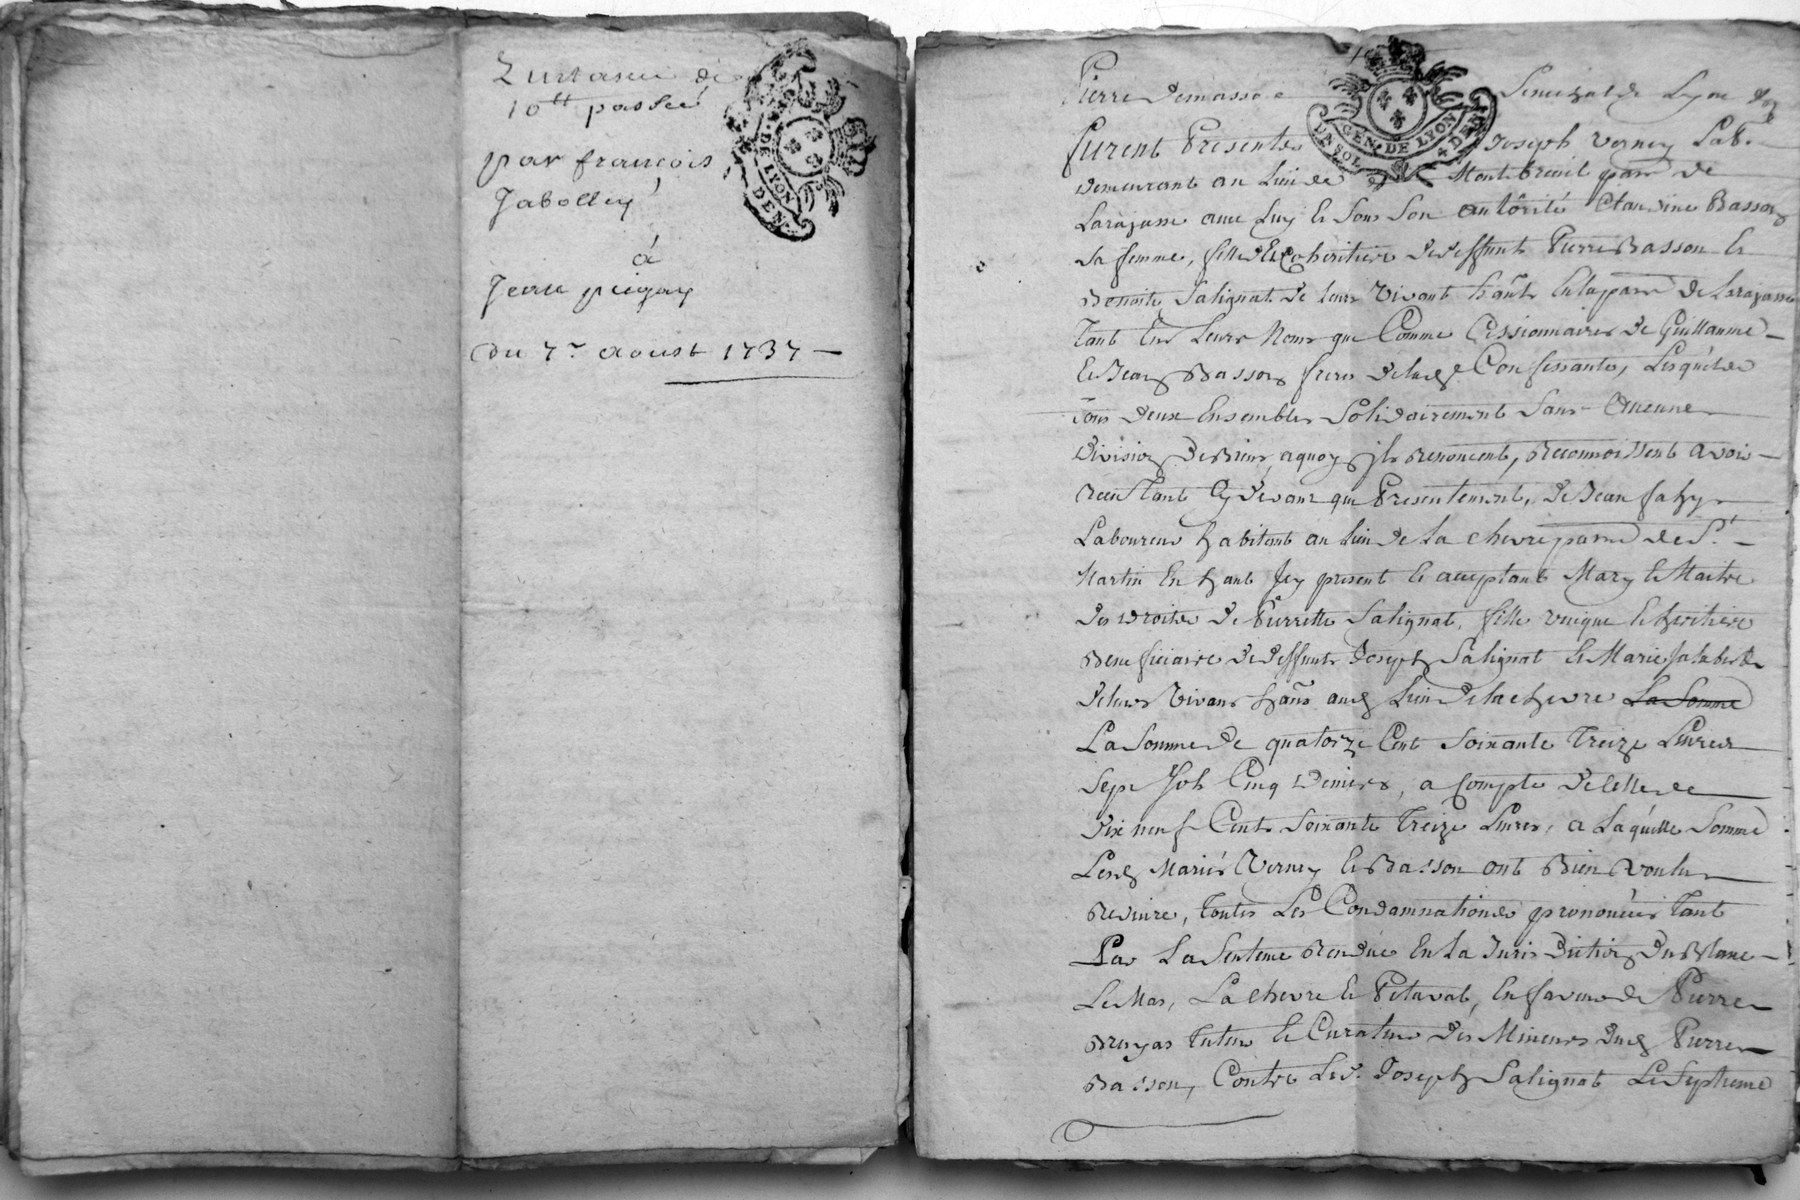 Quittance de
10tt passée
par françois
Jabolley
à
Jean pugay
du 7e aoust 1737
GEN. DE LYON
DEN
Pierre Demasso Senechal de Lyon
GEN. DE LYON
UN SOL DEN
furent Presents Joseph Verney Lab.
demeurant au Lieu de Montbreuil parr. de
Larajasse avec Luy et sous son authôrité Claudine Basson
sa femme, fille et coheritiere de deffunts Pierre Basson et
Benoite Salignat de leurs Vivant hants en la parr. de Larajasse
tant en Leurs Noms que Comme Cessionnaires de Guillaume
et Jean Basson freres de lad. Confessante, Lesquels
tous deux Ensembles Solidairement sans Aucune
Division De Biens, a quoy Jls Renoncent, Reconnoissent avoir
Receu tant Cy devant que Presentement, de Jean fahy
Laboureur habitant au Lieu de La chevre parr. de St.
Martin En haut Jcy present et acceptant Mary et Maitre
des Droits de Pierrette Salignat, fille unique et heritiere
Beneficiaire de deffunts Joseph Salignat et Marie
de leurs Vivans hans aud. Lieu de la chevre La Somme
La Somme de quatorze Cent soixante Treize Livres
sept sols Cinq Deniers, a Compte de Celle de
Dix neuf Cents soixante Treize Livres, a Laquelle Somme
Lesd. Mariés Verney et Basson ont Bien Voulu
Reduire, toutes Les Condamnations prononcées tant
Par La Sentence Rendue En La Jurisdiction Du Blanc
Le Mas, La Chevre et Petaval, En faveur de Pierre
Bruyas tuteur et Curateur des Mineurs dud. Pierre
Basson, Contre Led. Joseph Salignat Le Septieme